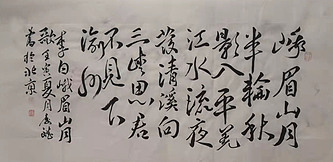 峨眉山月
半輪秋
影入平羌
江水流夜
發清溪向
三峡思君
不見下
渝州
李白峨眉山月
歌壬寅夏月
書於北京